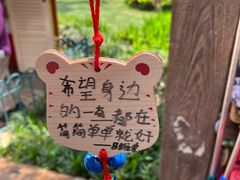 希望身边
的一直都在
简简单单就好